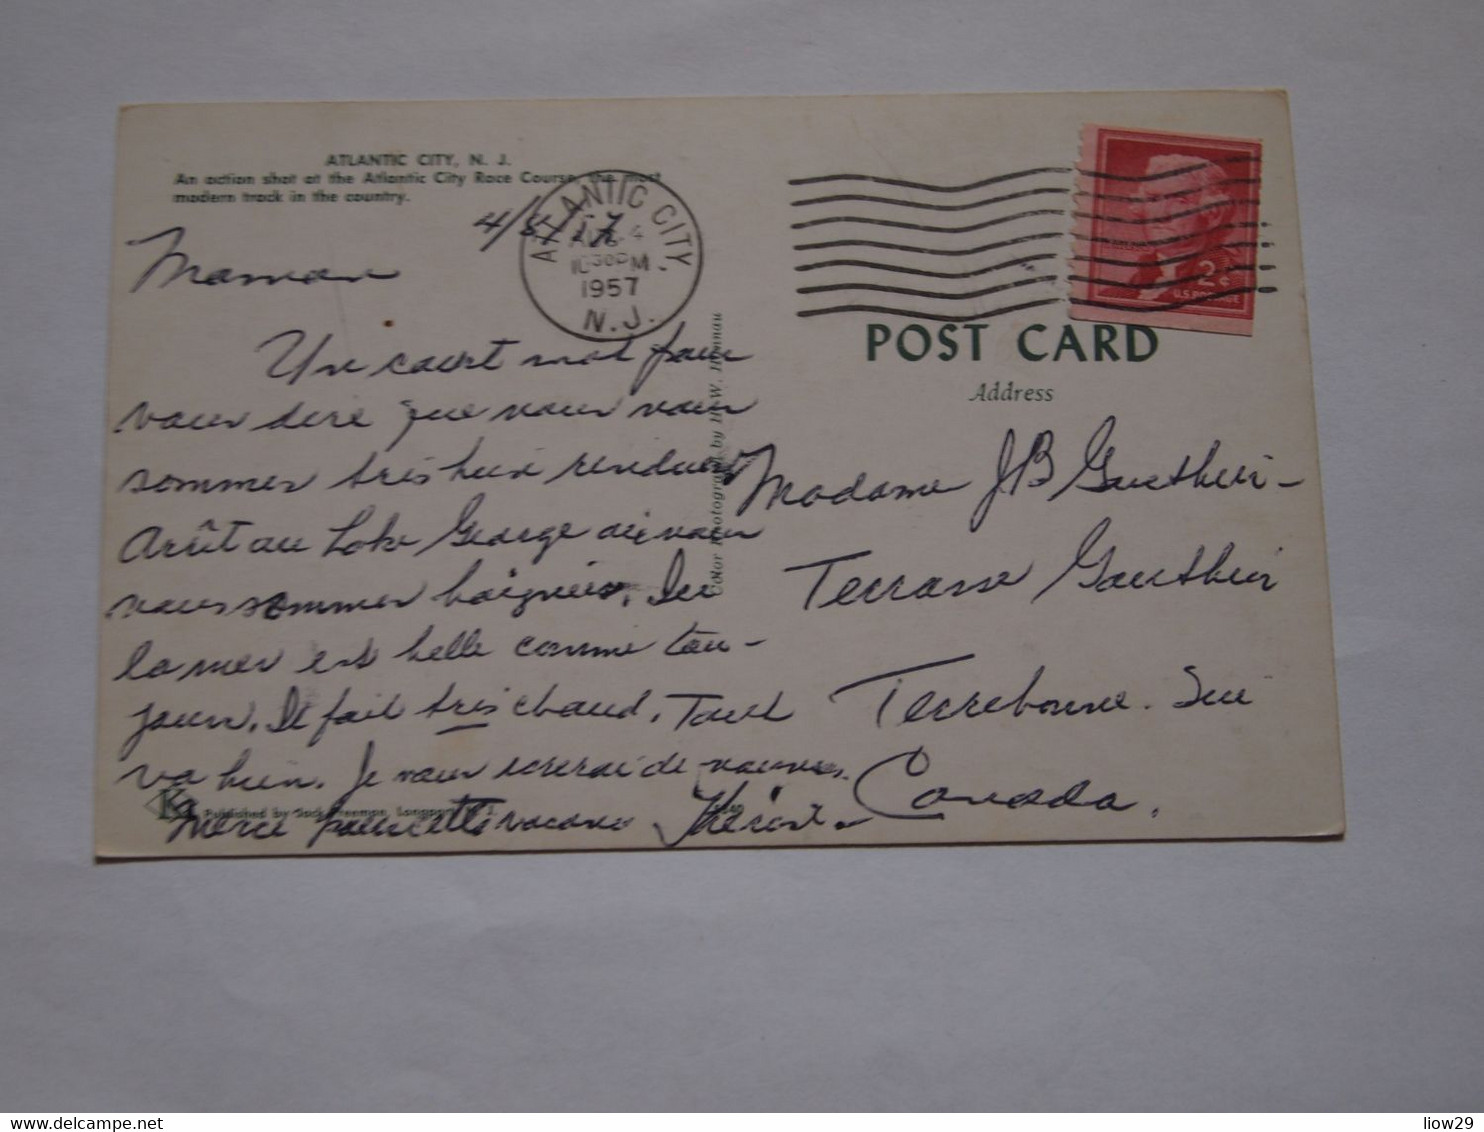 ATLANTIC CITY, N. J.
An action shot at the Atlantic City Race Course, the most
modern track in the country.
4/8/57
ATLANTIC CITY
AUG 4
10 30 PM
1957
N.J.
2¢
U.S. POSTAGE
POST CARD
Address
Maman
Un court mot pour
vous dire que nous nous
sommes très bien rendues
Arrêt au Lake George où nous
nous sommes baignées. Ici
la mer est belle comme tou-
jours. Il fait très chaud. Tout
va bien. Je vous écrirai de nouveau.
Merci pour cette vacance Thérèse
Madame J B Gauthier
Terrasse Gauthier
Terrebonne.
Canada.
Color Photograph by H. W. Hannau
Published by Jack Freeman, Longport, N. J.
delcampe.net
liow29